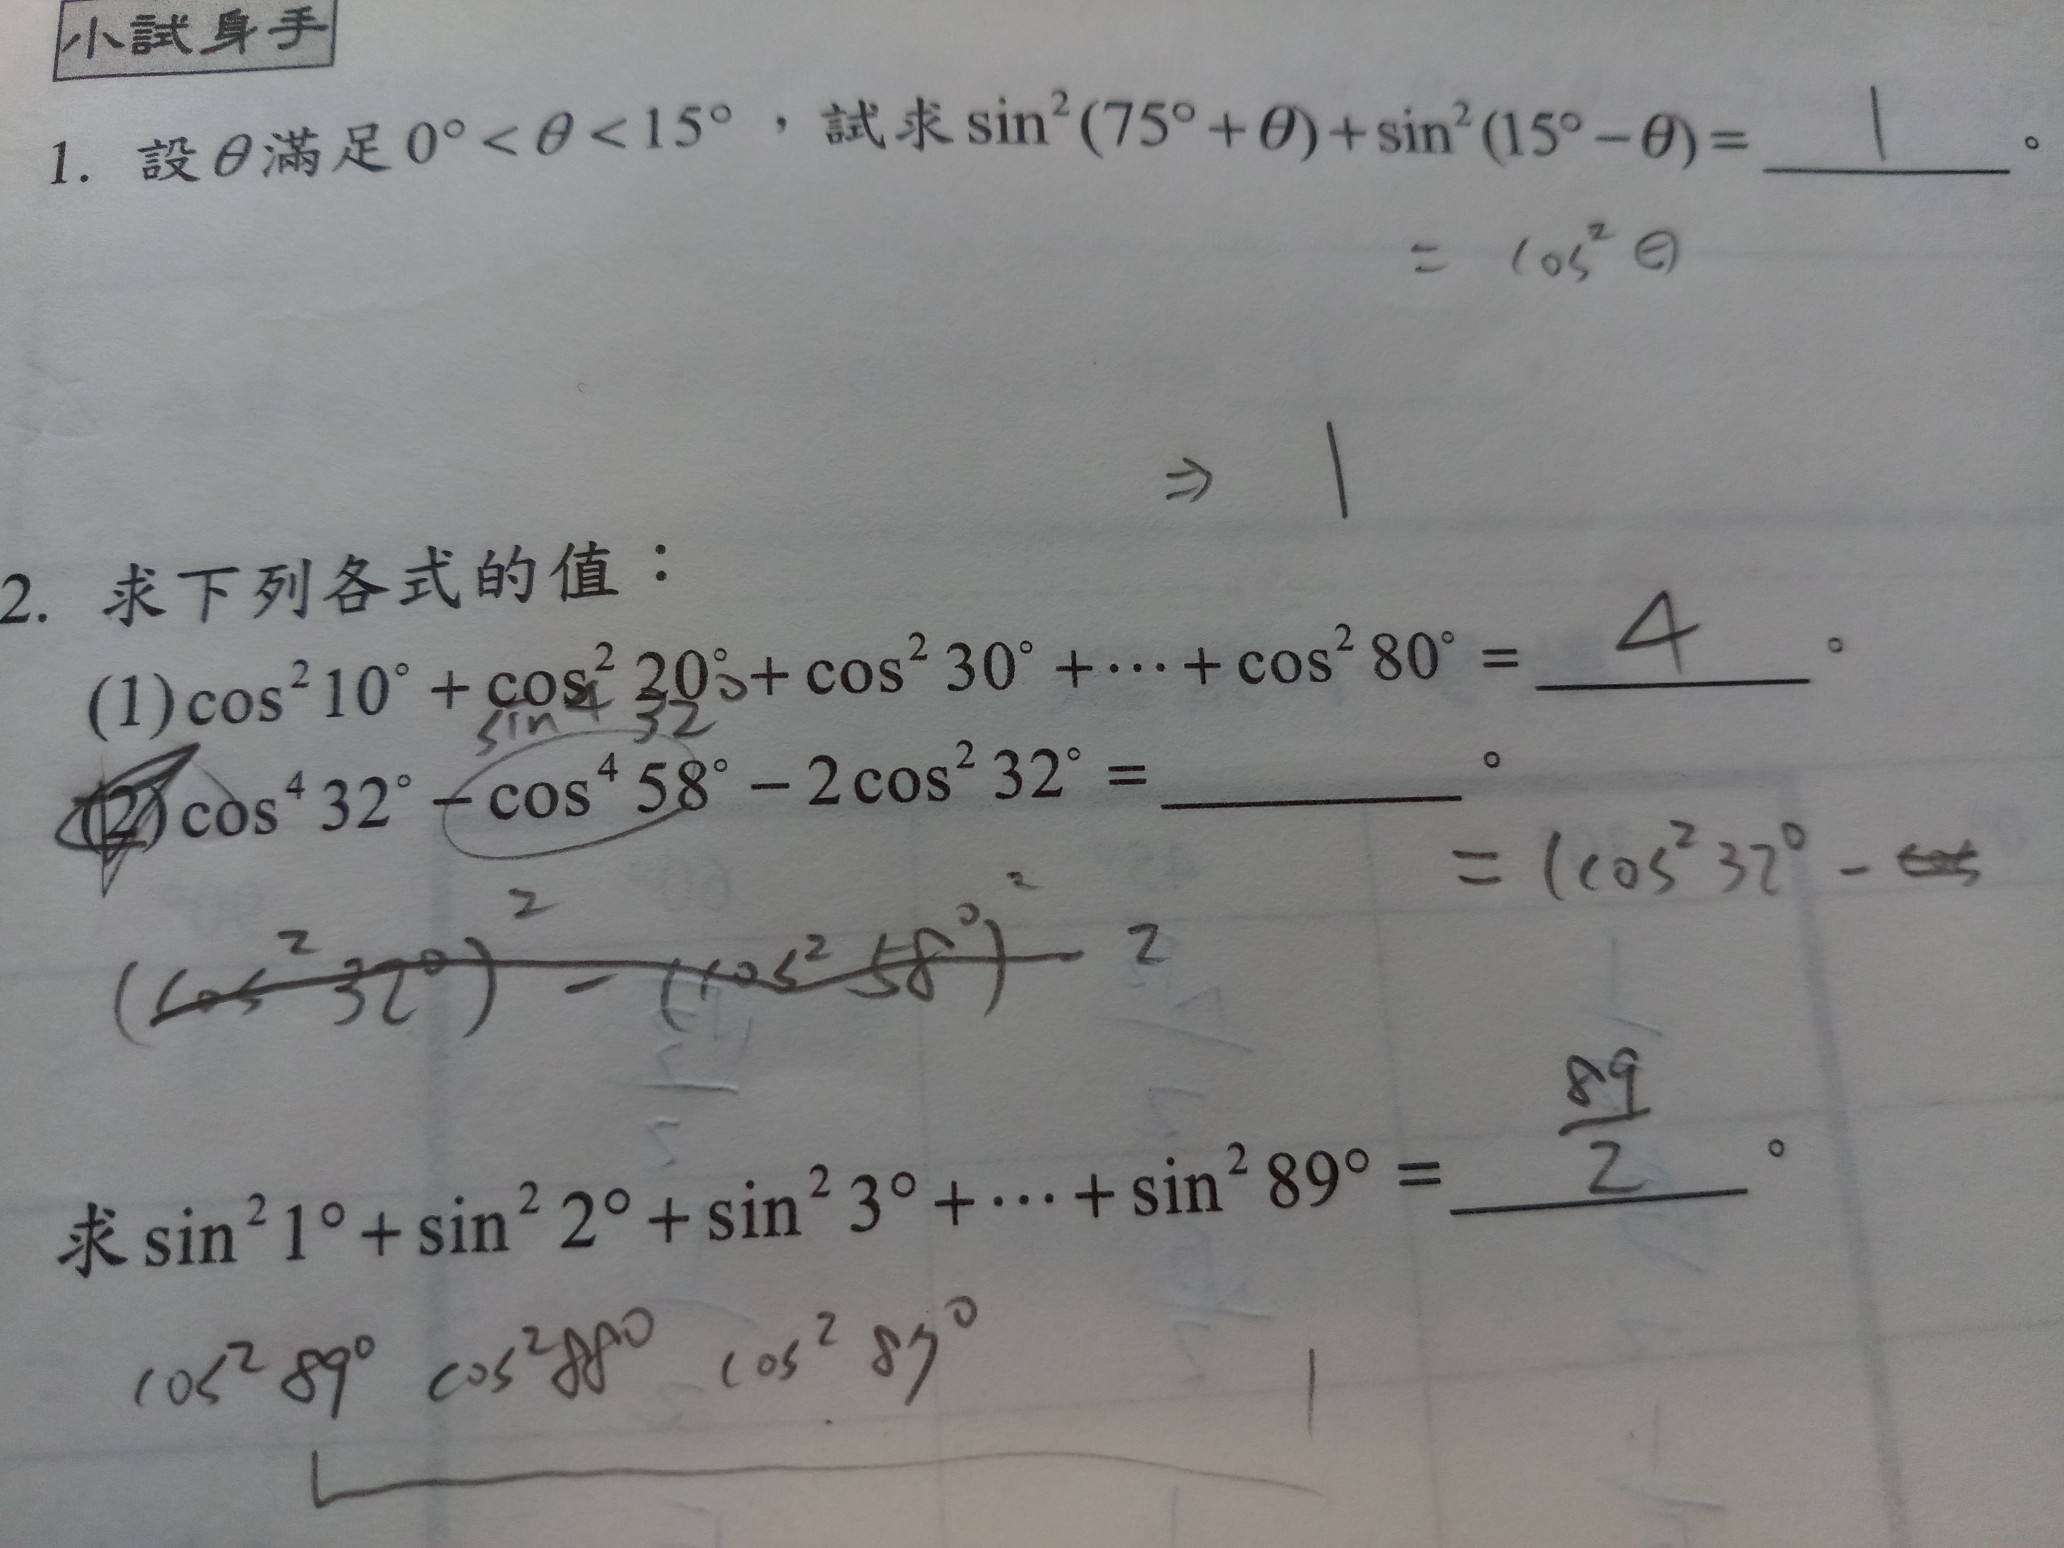 小試身手
1. 設θ滿足0°<θ<15°，試求sin²(75°+θ)+sin²(15°−θ)= 1 。
= cos² θ
⇒ 1
2. 求下列各式的值：
(1)cos²10°+cos²20°+cos²30°+⋯+cos²80°= 4 。
sin⁴ 32°
(2)cos⁴32°−cos⁴58°−2cos²32°= 。
= (cos²32° −
(cos²32°)² − (cos²58°)² − 2
求sin²1°+sin²2°+sin²3°+⋯+sin²89°= 89/2 。
cos²89° cos²88° cos²87° 1